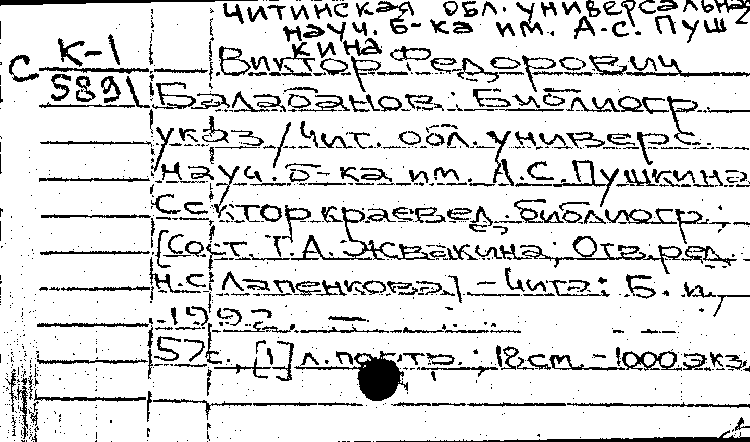 Читинская обл. универсальная
науч. б-ка им. А.С. Пуш-
кина
С К-1
5891
Виктор Федорович
Балабанов: Библиогр.
указ / Чит. обл. универс.
науч. б-ка им. А.С. Пушкина
Сектор краевед. библиогр.;
[Сост. Т.А. Жвакина; Отв. ред.
Н.С Лапенкова] - Чита: Б. и.,
1992. —
57 с., [1] л. портр.; 18 см. - 1000 экз.